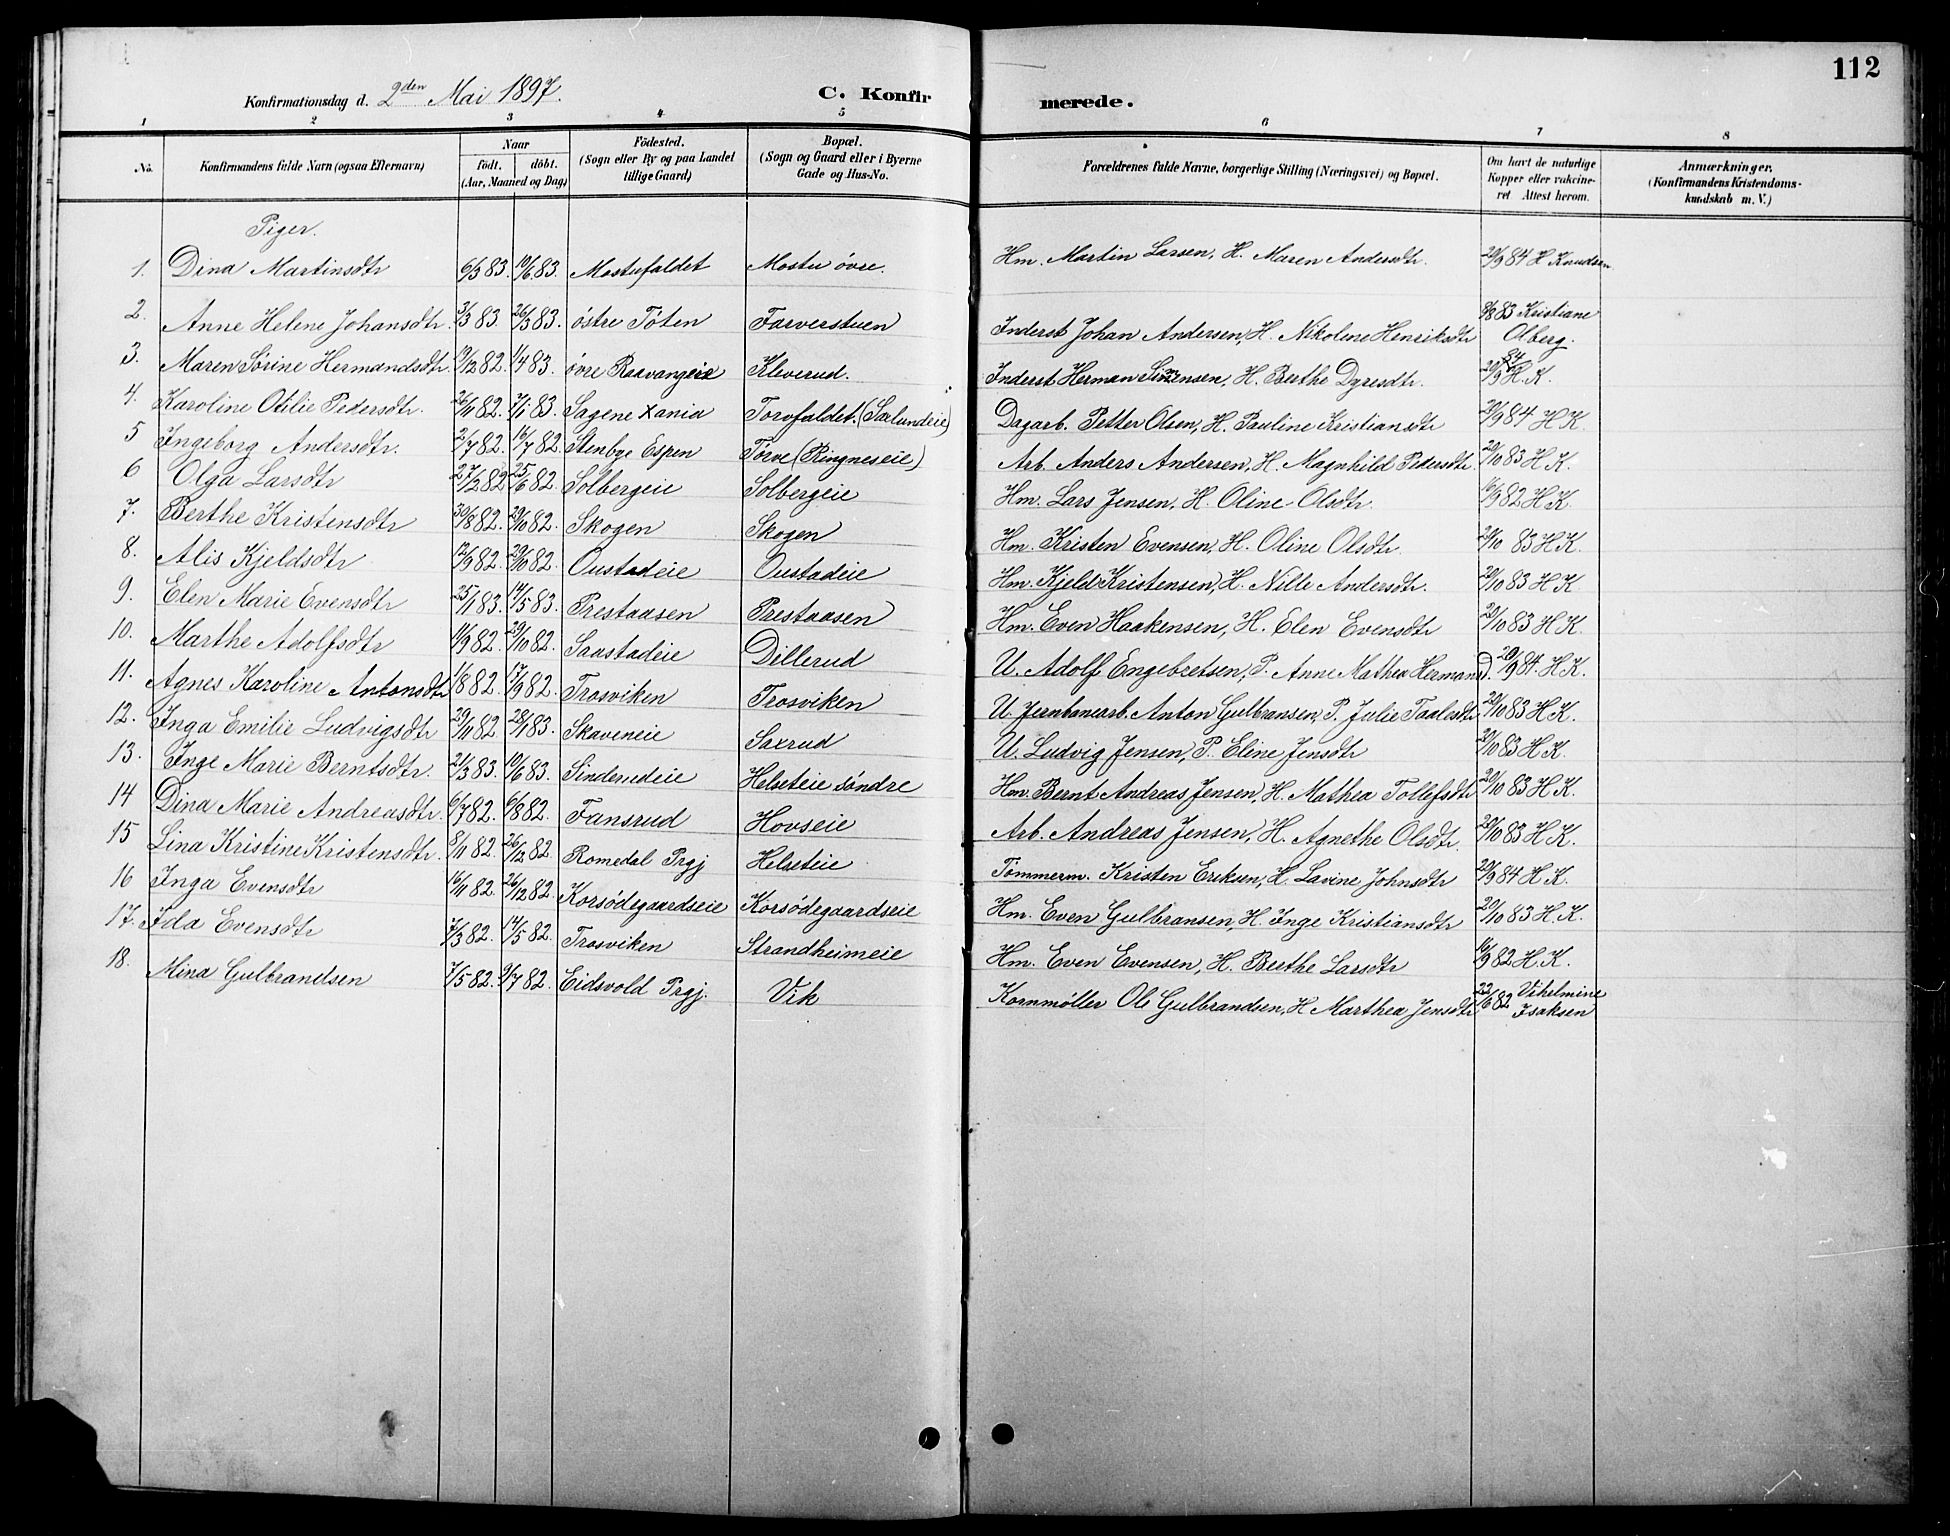 112
Konfirmationsdag d. 2den Mai 1897. C. Konfirmerede.
1 2 3 4 5 6 7 8
No. Konfirmandens fulde Navn (ogsaa Efternavn) Naar födt. döbt. (Aar, Maaned og Dag) Födested. (Sogn eller By og paa Landet tillige Gaard) Bopæl. (Sogn og Gaard eller i Byerne Gade og Hus-No. Forældrenes fulde Navne, borgerlige Stilling (Næringsvei) og Bopæl. Om havt de naturlige Kopper eller vakcineret Attest herom. Anmærkninger. (Konfirmandens Kristendomskundskab m. V.)
Piger.
1. Dina Martinsdtr 6/3 83. 10/6 83. Mostufaldet Mostu øvre. Hm. Martin Larsen, H. Maren Andersdtr. 20/9 84 H Knudsen
2. Anne Helene Johansdtr. 3/3 83. 26/3 83. østre Toten Farverstuen Inderst Johan Andersen, H. Nikolene Henriksdtr 8/8 83 Kristiane Olberg.
3. Maren Sørine Hermandsdtr. 19/12 82. 1/4 83. øvre Raavangeie Kleverud. Inderst Herman Simensen, H. Berthe Dyresdtr. 20/9 84 H. K.
4. Karoline Otilie Pedersdtr. 26/11 82. 7/1 83. Sagene Xania Torvfaldet. (Sælundeie) Dagarb. Petter Olsen, H. Pauline Kristiansdtr 20/9 84 H K.
5 Ingeborg Andersdtr. 2/7 82. 16/7 82. Stenbye Espen Torve (Ringneseie) Arb. Anders Andersen, H. Magnhild Pedersdtr 20/10 83 H K.
6 Olga Larsdtr 27/2 82 25/6 82. Solbergeie Solbergeie Hm. Lars Jensen, H. Oline Olsdtr. 16/9 82 H K.
7. Berthe Kristensdtr 30/8 82. 29/10 82. Skogen Skogen Hm. Kristen Evensen, H. Oline Olsdtr. 20/10 83 H K.
8. Alis Kjeldsdtr 12/9 82. 29/10 82. Oustadeie Oustadeie Hm. Kjeld Kristensen, H. Nille Andersdtr. 20/10 83 H K.
9. Elen Marie Evensdtr 25/1 83. 14/5 83. Prestaasen Prestaasen Hm. Even Haakensen, H. Elen Evensdtr 20/10 83 H K.
10. Marthe Adolfsdtr 11/9 82. 29/10 82. Saastadeie Dillerud U. Adolf Engebretsen, P. Anne Mathea Hermand. 20/9 84. H K.
11. Agnes Karoline Antonsdtr 1/8 82. 17/9 82. Trosviken Trosviken U. Jernbanearb. Anton Gulbransen, P. Julie Taalesdtr 20/10 83 H K.
12. Inga Emilie Ludvigsdtr 29/11 82 28/1 83. Skaveneie Saxrud U. Ludvig Jensen, P. Eline Jensdtr 20/10 83 H K.
13. Inge Marie Berntsdtr. 21/3 83. 10/6 83. Sindenedeie Helseteie søndre Hm. Bernt Andreas Jensen, H. Mathea Tollefsdtr 20/10 83 H K.
14 Dina Marie Andreasdtr. 6/7 82. 6/8 82. Fansrud Hovseie Arb. Andreas Jensen, H. Agnethe Olsdtr. 20/10 83 H K.
15 Lina Kristine Kristensdtr. 8/11 82. 26/12 82. Romedal Prgj Helseteie Tømmerm. Kristen Eriksen, H. Lavine Johnsdtr 20/9 84 H K.
16 Inga Evensdtr 16/11 82. 26/12 82. Korsödegaardseie Korsödegaardseie Hm. Even Gulbransen, H. Inge Kristiansdtr 20/10 83 H. K.
17. Ida Evensdtr 7/3 82. 14/5 82. Trosviken Strandheimeie Hm. Even Evensen, H. Berthe Larsdtr 16/9 82 H. K.
18. Mina Gulbrandsen 7/5 82. 9/7 82. Eidsvold Prgj. Vik Kornmøller Ole Gulbrandsen, H Marthea Jensdtr 22/6 82 Vihelmine Isaksen